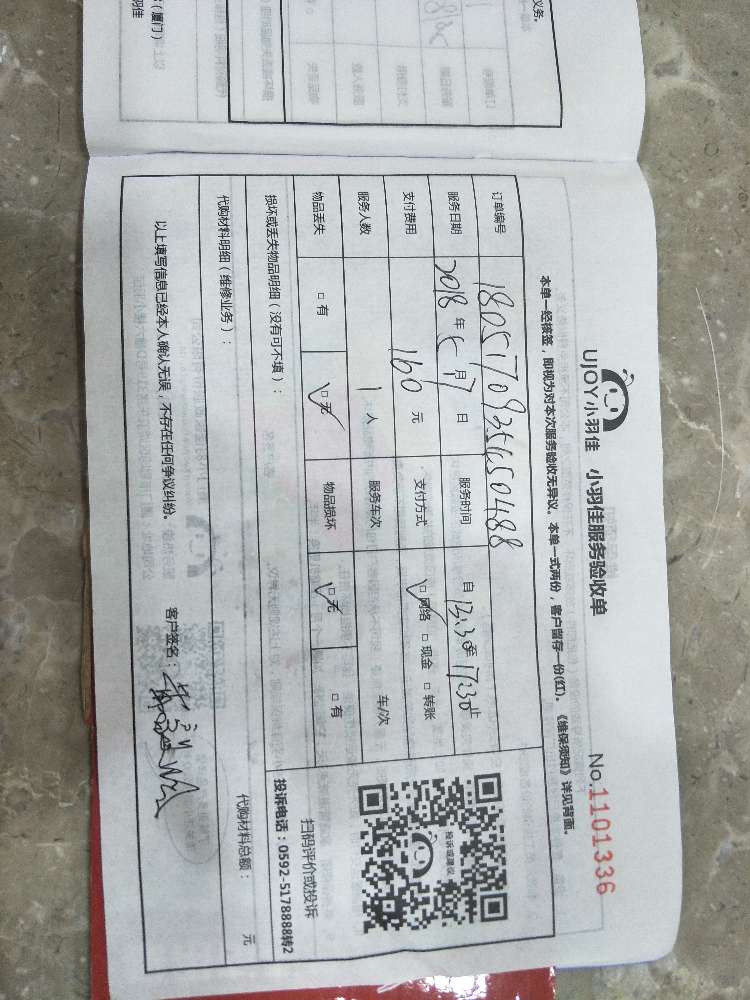 UJOY小羽佳 小羽佳服务验收单 No.1101336
本单一经核签，即视为对本次服务验收无异议。本单一式两份，客户留存一份(红)。《维保须知》详见背面。
订单编号
服务日期 2018年5月17日 服务时间 自13:30至17:30止
支付费用 160元 支付方式 ☑网络 □现金 □转账
服务人数 1人 服务车次 车/次
物品丢失 □有 ☑无 物品损坏 ☑无 □有
投诉或建议
扫码评价或投诉
投诉电话：0592-5178888转2
损坏或丢失物品明细（没有可不填）：
代购材料明细（维修业务）： 代购材料总额： 元
以上填写信息已经本人确认无误，不存在任何争议纠纷。 客户签名：